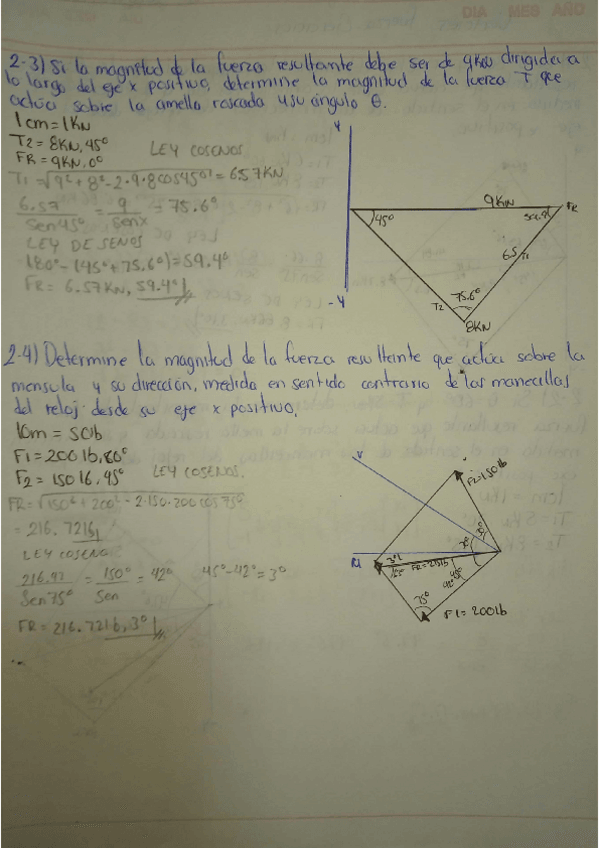 DIA MES AÑO
2-3) Si la magnitud de la fuerza resultante debe ser de 9KN dirigida a
lo largo del eje x positivo, determine la magnitud de la fuerza T que
actúa sobre la amella roscada y su ángulo θ.
1cm=1KN
T2=8KN,45° LEY COSENOS
FR=9KN,0°
T1=√9²+8²-2·9·8cos45° = 6.57KN
6.57/Sen45° = 9/senx = 75.6°
LEY DE SENOS
180°-(45°+75,6°)=59.4°
FR=6.57KN,59.4°
Y
9KN
FR
45°
59.4°
6.5 T1
75.6°
T2
8KN
-Y
2-4) Determine la magnitud de la fuerza resultante que actúa sobre la
mensula y su dirección, medida en sentido contrario de las manecillas
del reloj desde su eje x positivo.
1cm=50lb
F1=200lb,80°
F2=150lb,45° LEY COSENOS.
FR=√150²+200²-2·150·200cos75°
=216.72lb
LEY COSENO
216.92/Sen75° = 150°/Sen = 42° 45°-42°=3°
FR=216.72lb,3°
F2=150lb
30°
30°
3°
FR=215lb
45°
42°
75°
F1=200lb